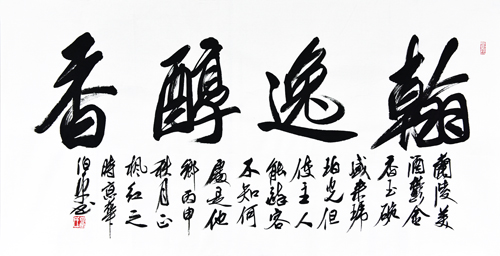 翰逸醇香
蘭陵美
酒鬱金
香玉碗
盛来琥
珀光但
使主人
能醉客
不知何
處是他
鄉丙申
秋月正
楓红之
時京華